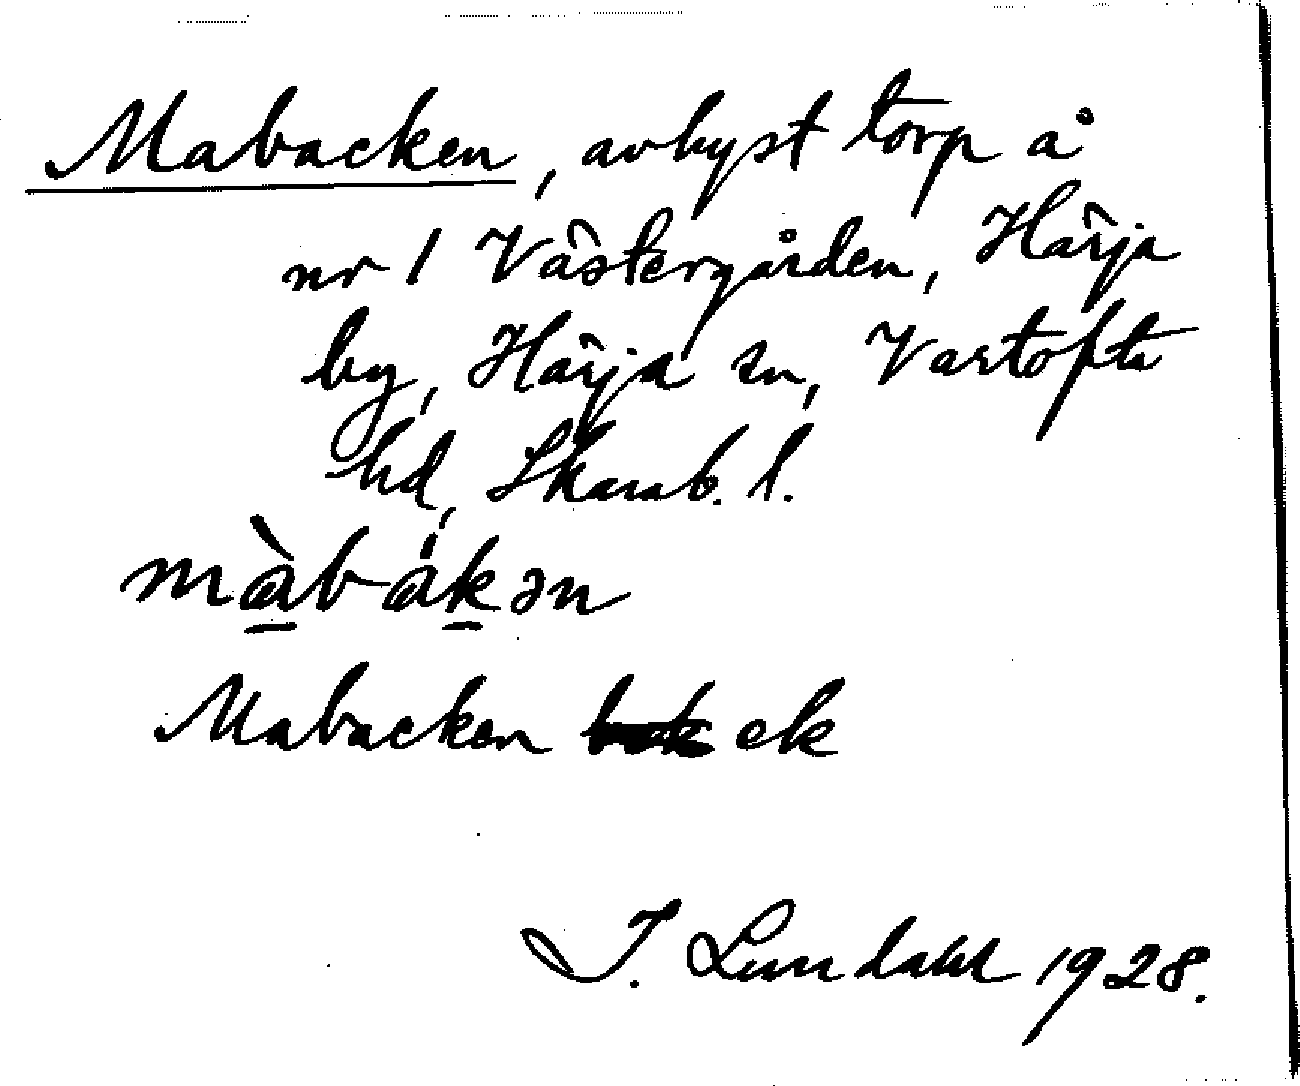 Mabacken, avhyst torp å
nr 1 Västergården, Härja
by, Härja sn, Vartofta
hd, Skarab. l.
màbákən
Mabacken ek
I. Lundahl 1928.